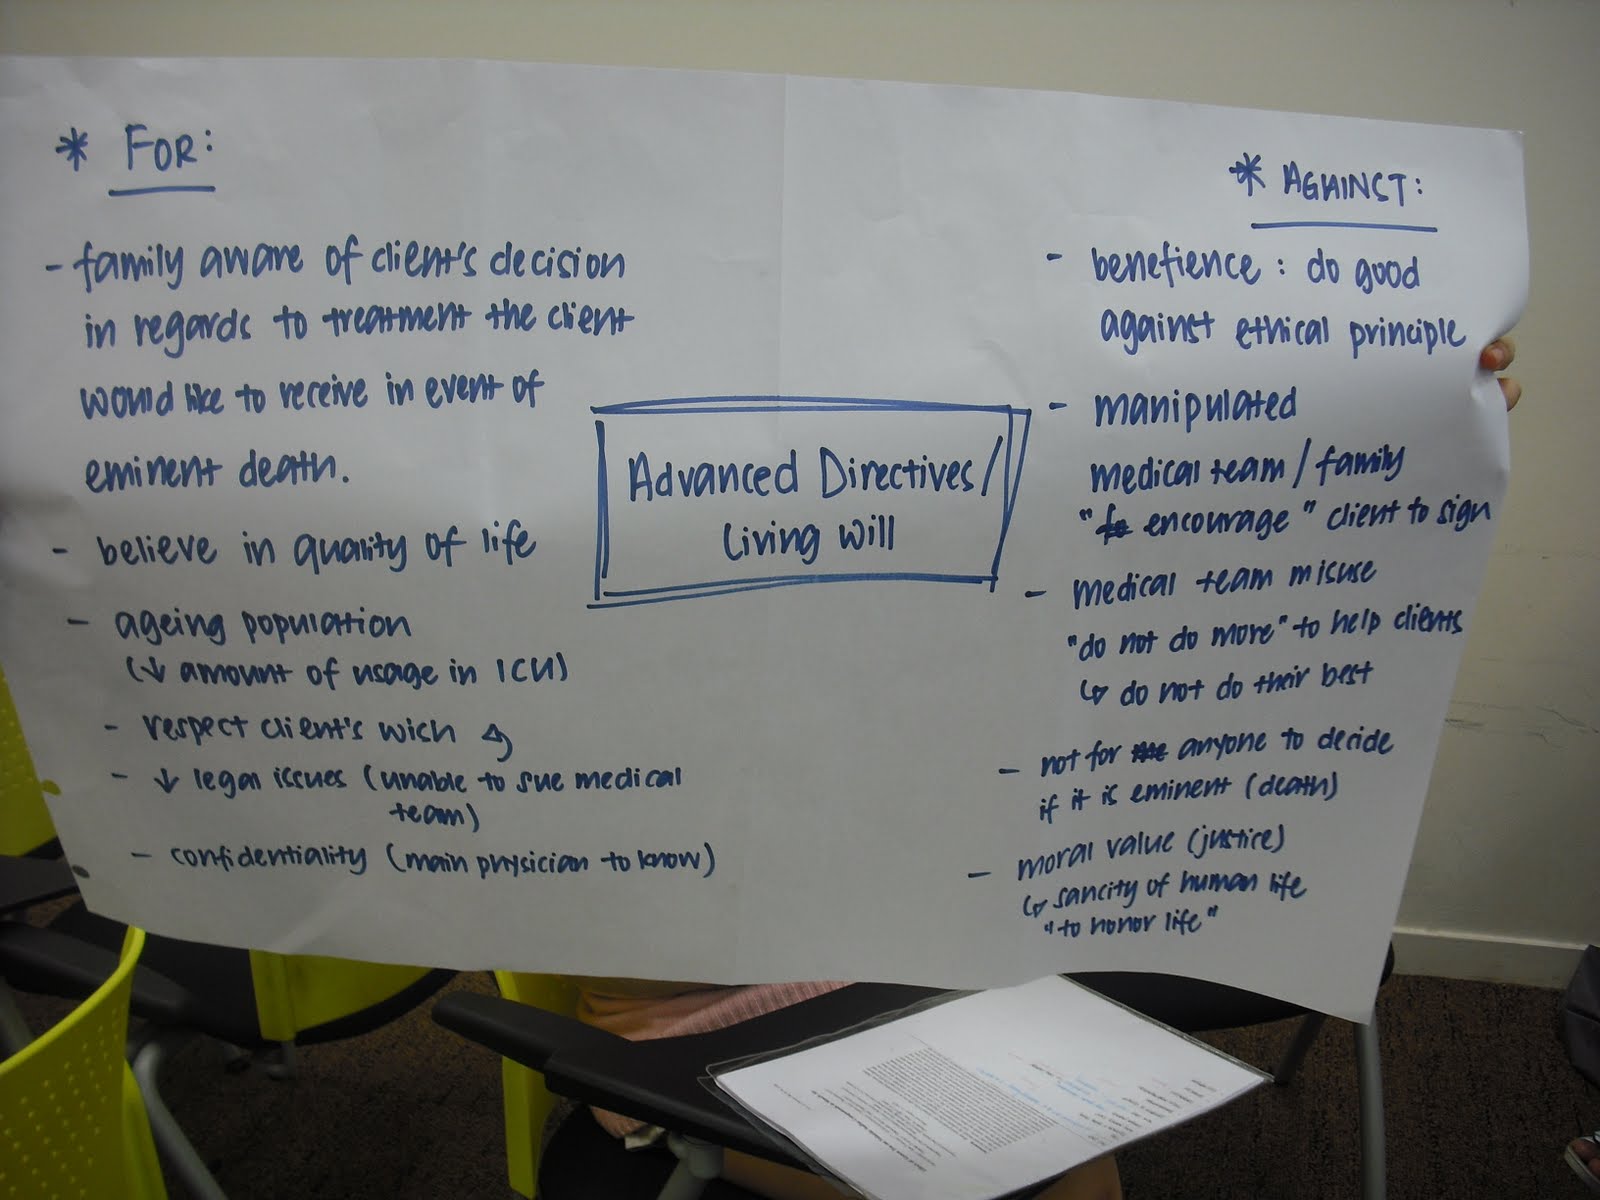 * FOR:
- family aware of client's decision
in regards to treatment the client
would like to receive in event of
eminent death.
- believe in quality of life
- ageing population
(↓ amount of usage in ICU)
- respect client's wish
- ↓ legal issues (unable to sue medical
team)
- confidentiality (main physician to know)
Advanced Directives/
Living Will
* AGAINST:
- benefience : do good
against ethical principle
- manipulated
medical team / family
" encourage " client to sign
- medical team misuse
"do not do more" to help clients
↳ do not do their best
- not for anyone to decide
if it is eminent (death)
- moral value (justice)
↳ sancity of human life
"to honor life"